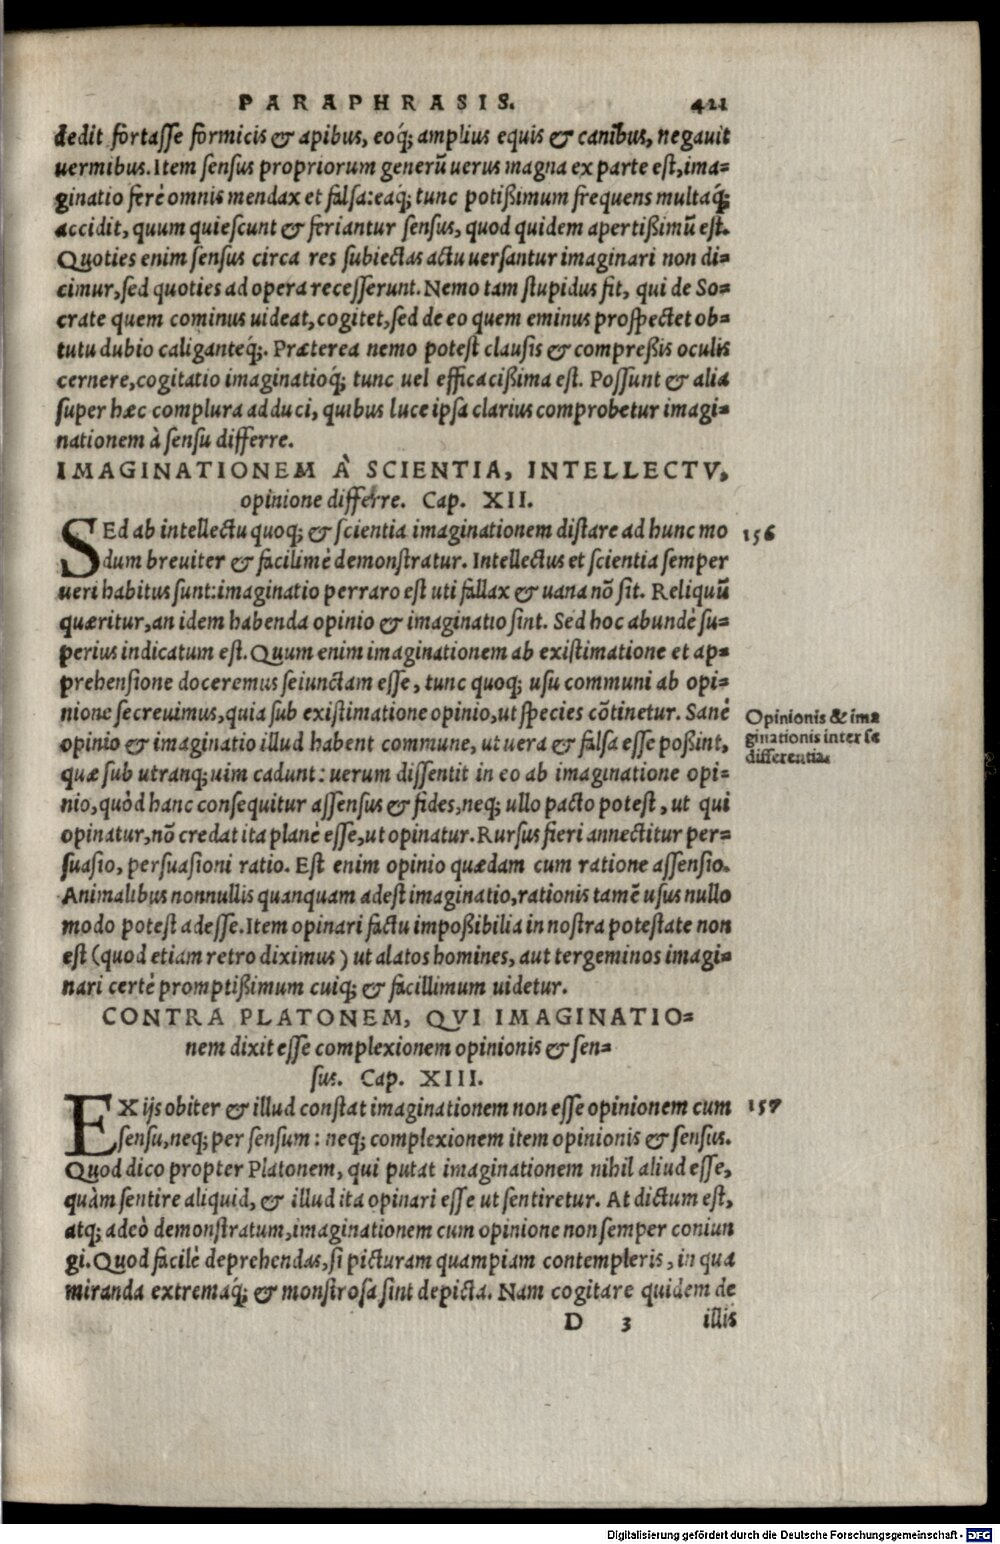 PARAPHRASIS. 421
dedit fortasse formicis & apibus, eoq́; amplius equis & canibus, negauit
uermibus. Item sensus propriorum generũ uerus magna ex parte est, ima=
ginatio ferè omnis mendax et falsa: eaq́; tunc potißimum frequens multaq́;
accidit, quum quiescunt & feriantur sensus, quod quidem apertißimũ est.
Quoties enim sensus circa res subiectas actu uersantur imaginari non di=
cimur, sed quoties ad opera recesserunt. Nemo tam stupidus fit, qui de So=
crate quem cominus uideat, cogitet, sed de eo quem eminus prospectet ob=
tutu dubio caliganteq́;. Præterea nemo potest clausis & compreßis oculis
cernere, cogitatio imaginatioq́; tunc uel efficacißima est. Possunt & alia
super hæc complura adduci, quibus luce ipsa clarius comprobetur imagi=
nationem à sensu differre.
IMAGINATIONEM À SCIENTIA, INTELLECTV,
opinione differre. Cap. XII.
SEd ab intellectu quoq; & scientia imaginationem distare ad hunc mo 156
dum breuiter & facilimè demonstratur. Intellectus et scientia semper
ueri habitus sunt: imaginatio perraro est uti fallax & uana nõ sit. Reliquũ
quæritur, an idem habenda opinio & imaginatio sint. Sed hoc abundè su=
perius indicatum est. Quum enim imaginationem ab existimatione et ap=
prehensione doceremus seiunctam esse, tunc quoq; usu communi ab opi=
nione secreuimus, quia sub existimatione opinio, ut species cõtinetur. Sanè
opinio & imaginatio illud habent commune, ut uera & falsa esse poßint,
quæ sub utranq; uim cadunt: uerum dissentit in eo ab imaginatione opi=
nio, quòd hanc consequitur assensus & fides, neq; ullo pacto potest, ut qui
opinatur, nõ credat ita planè esse, ut opinatur. Rursus fieri annectitur per=
suasio, persuasioni ratio. Est enim opinio quædam cum ratione assensio.
Animalibus nonnullis quanquam adest imaginatio, rationis tamẽ usus nullo
modo potest adesse. Item opinari factu impoßibilia in nostra potestate non
est (quod etiam retro diximus) ut alatos homines, aut tergeminos imagi=
nari certè promptißimum cuiq; & facillimum uidetur.
Opinionis & ima
ginationis inter se
differentia.
CONTRA PLATONEM, QVI IMAGINATIO=
nem dixit esse complexionem opinionis & sen=
sus. Cap. XIII.
EX ijs obiter & illud constat imaginationem non esse opinionem cum 157
sensu, neq; per sensum: neq; complexionem item opinionis & sensus.
Quod dico propter Platonem, qui putat imaginationem nihil aliud esse,
quàm sentire aliquid, & illud ita opinari esse ut sentiretur. At dictum est,
atq; adeò demonstratum, imaginationem cum opinione non semper coniun
gi. Quod facilè deprehendas, si picturam quampiam contempleris, in qua
miranda extremaq́; & monstrosa sint depicta. Nam cogitare quidem de
D 3 illis
Digitalisierung gefördert durch die Deutsche Forschungsgemeinschaft - DFG